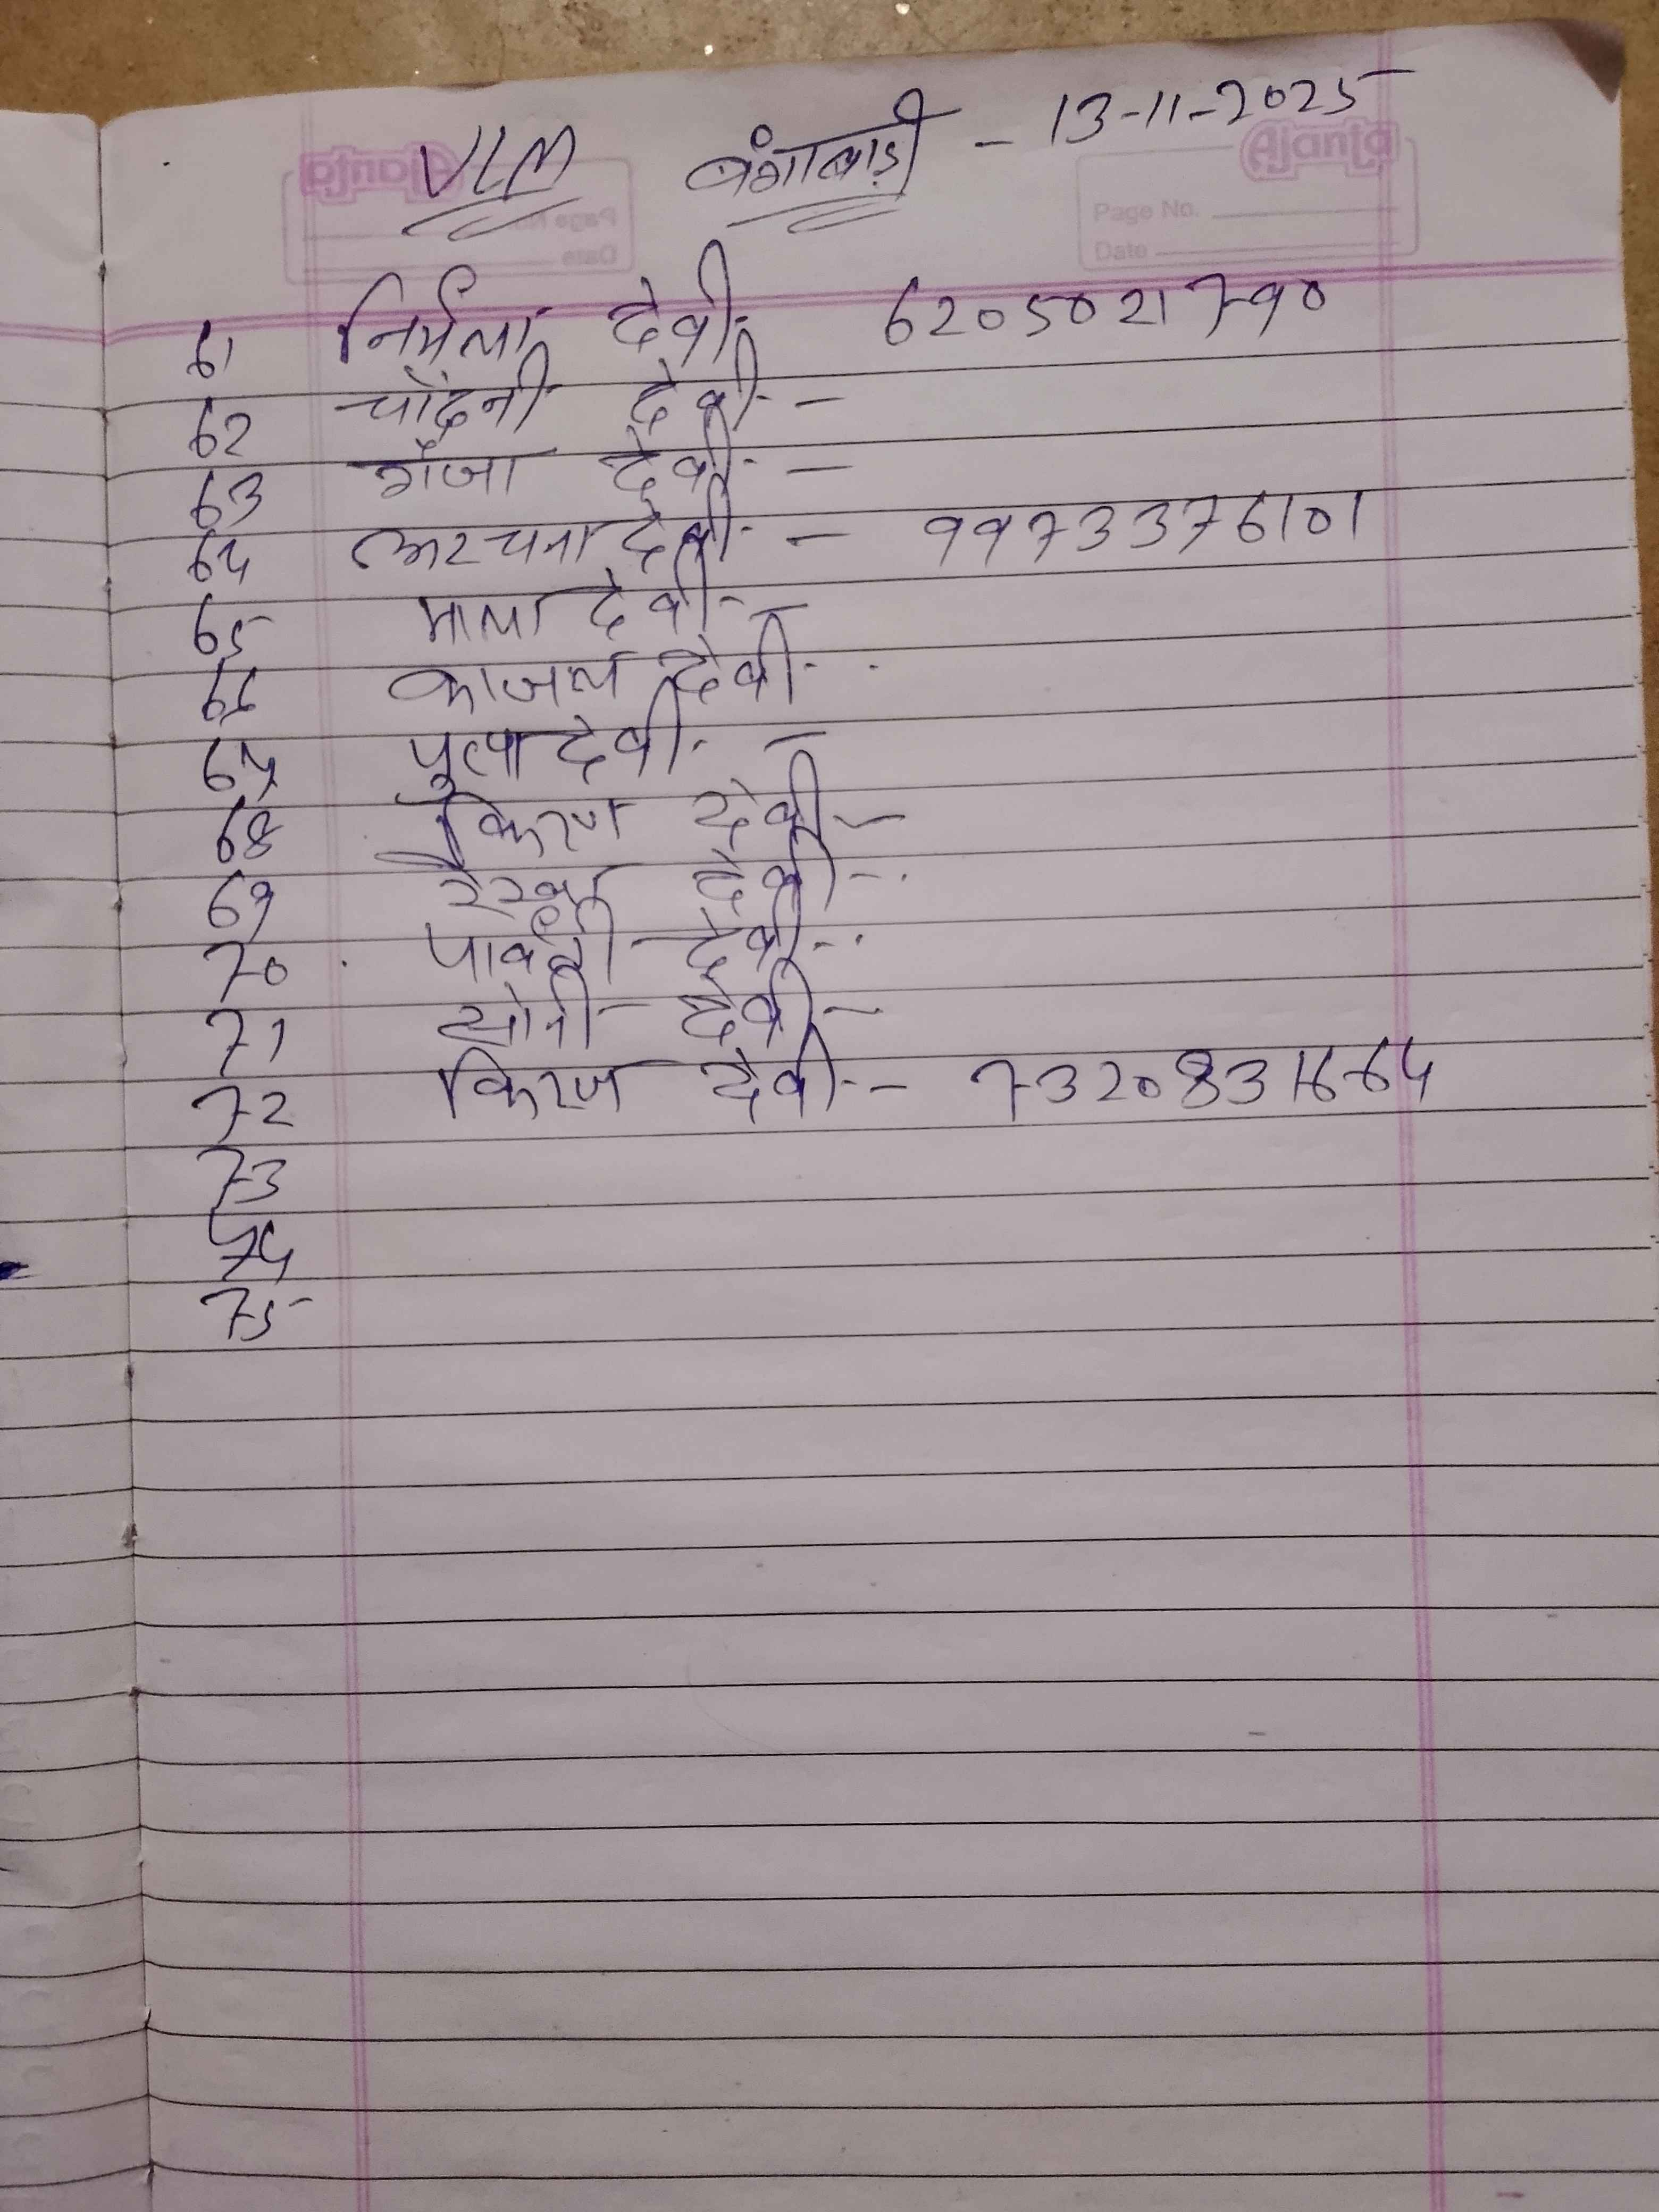 VLM बंगाबाड़ी - 13-11-2025
Ajanta
Page No.
Date
61 निर्मला देवी 6205021790
62 चाँदनी देवी -
63 गँजा देवी -
64 अरचना देवी - 9973376101
65 माला देवी -
66 काजल देवी
67 पुत्पा देवी -
68 किरण देवी -
69 रेखा देवी -
70 पार्वती देवी
71 सोनी देवी -
72 किरण देवी - 7320831664
73
74
75